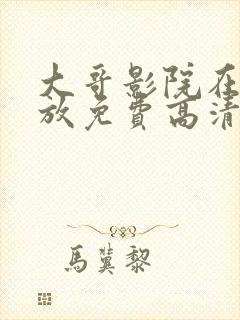 大哥影院在
放免费高清
馬蓂黎